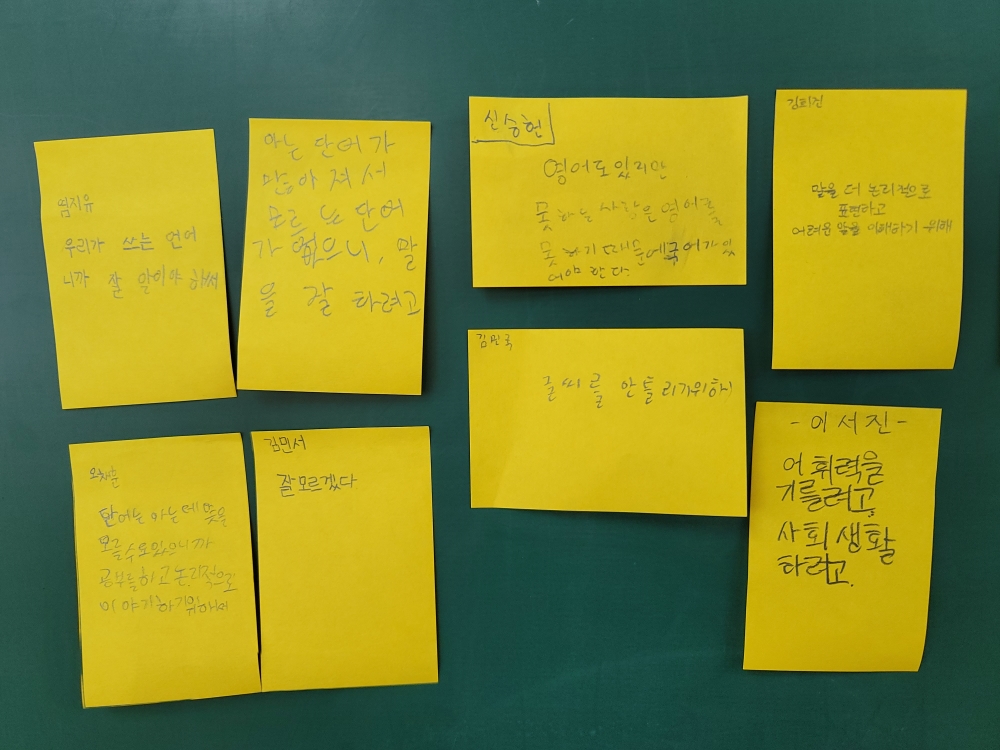 임지유
우리가 쓰는 언어
니까 잘 알아야 해서
아는 단어가
많아 져서
모르는 단어
가 없으니, 말
을 잘 하려고
신승헌
영어도 있지만
못하는 사람은 영어를
못 하기 때문에 국어가 있
어야 한다.
김희진
말을 더 논리적으로
표현하고
어려운 말을 이해하기 위해
김민국
글씨를 안틀리기위해
오채훈
단어는 아는데 뜻을
모를수도있으니까
공부를하고 논리적으로
이야기하기위해서
김민서
잘모르겠다
-이서진-
어휘력을
기를려고,
사회생활
하려고.